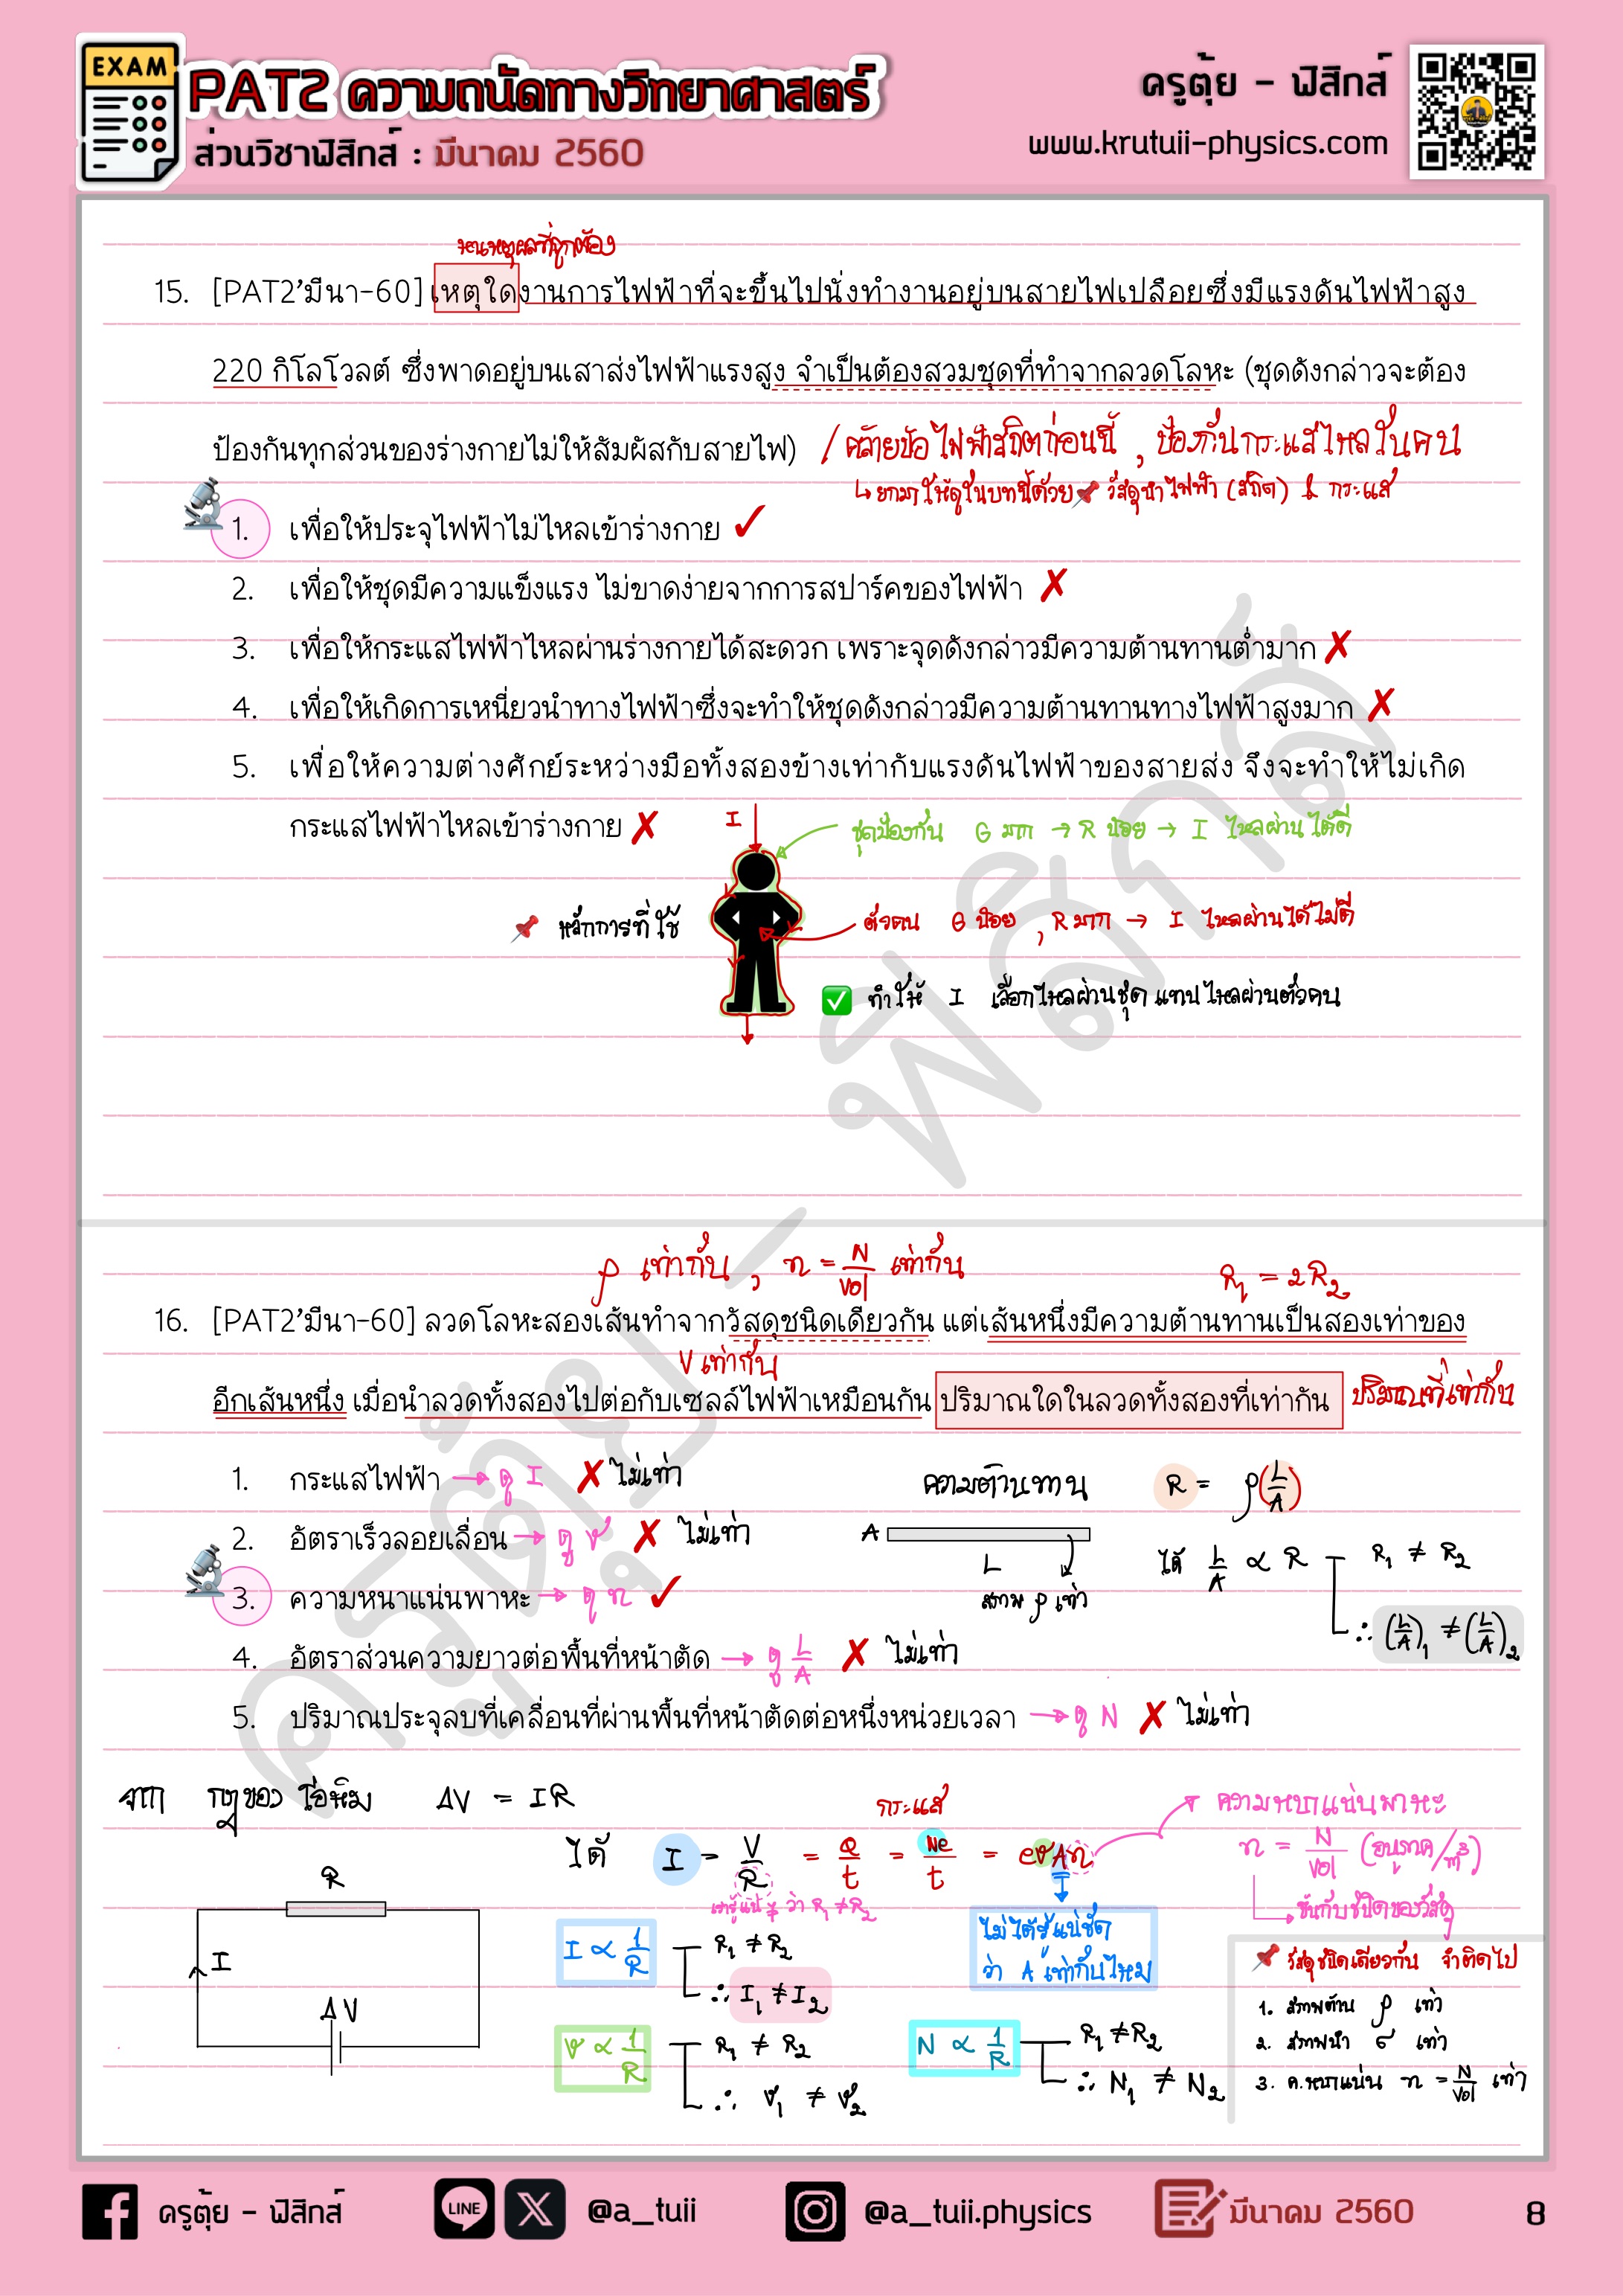 EXAM
PAT2 ความถนัดทางวิทยาศาสตร์
ส่วนวิชาฟิสิกส์ : มีนาคม 2560
ครูตุ้ย - ฟิสิกส์
www.krutuii-physics.com
หาเหตุผลที่ถูกต้อง
15. [PAT2'มีนา-60] เหตุใดงานการไฟฟ้าที่จะขึ้นไปนั่งทำงานอยู่บนสายไฟเปลือยซึ่งมีแรงดันไฟฟ้าสูง
220 กิโลโวลต์ ซึ่งพาดอยู่บนเสาส่งไฟฟ้าแรงสูง จำเป็นต้องสวมชุดที่ทำจากลวดโลหะ (ชุดดังกล่าวจะต้อง
ป้องกันทุกส่วนของร่างกายไม่ให้สัมผัสกับสายไฟ) / คล้ายข้อ ไฟฟ้าสถิตก่อนนี้ , ป้องกันกระแสไหลในคน
↳ ยกมาให้ดูในบทนี้ด้วย 📌 วัสดุนำไฟฟ้า (สถิต) & กระแส
1. เพื่อให้ประจุไฟฟ้าไม่ไหลเข้าร่างกาย ✓
2. เพื่อให้ชุดมีความแข็งแรง ไม่ขาดง่ายจากการสปาร์คของไฟฟ้า ✗
3. เพื่อให้กระแสไฟฟ้าไหลผ่านร่างกายได้สะดวก เพราะจุดดังกล่าวมีความต้านทานต่ำมาก ✗
4. เพื่อให้เกิดการเหนี่ยวนำทางไฟฟ้าซึ่งจะทำให้ชุดดังกล่าวมีความต้านทานทางไฟฟ้าสูงมาก ✗
5. เพื่อให้ความต่างศักย์ระหว่างมือทั้งสองข้างเท่ากับแรงดันไฟฟ้าของสายส่ง จึงจะทำให้ไม่เกิด
กระแสไฟฟ้าไหลเข้าร่างกาย ✗
I
ชุดป้องกัน G มาก → R น้อย → I ไหลผ่านได้ดี
📌 หลักการที่ใช้
ตัวคน G น้อย , R มาก → I ไหลผ่านได้ไม่ดี
✅ ทำให้ I เลือกไหลผ่านชุด แทนไหลผ่านตัวคน
ρ เท่ากัน , n = N/Vol เท่ากัน
R₁ = 2R₂
16. [PAT2'มีนา-60] ลวดโลหะสองเส้นทำจากวัสดุชนิดเดียวกัน แต่เส้นหนึ่งมีความต้านทานเป็นสองเท่าของ
V เท่ากัน
อีกเส้นหนึ่ง เมื่อนำลวดทั้งสองไปต่อกับเซลล์ไฟฟ้าเหมือนกัน ปริมาณใดในลวดทั้งสองที่เท่ากัน ปริมาณที่เท่ากัน
1. กระแสไฟฟ้า → ดู I ✗ ไม่เท่า
2. อัตราเร็วลอยเลื่อน → ดู v ✗ ไม่เท่า
3. ความหนาแน่นพาหะ → ดู n ✓
4. อัตราส่วนความยาวต่อพื้นที่หน้าตัด → ดู L/A ✗ ไม่เท่า
5. ปริมาณประจุลบที่เคลื่อนที่ผ่านพื้นที่หน้าตัดต่อหนึ่งหน่วยเวลา → ดู N ✗ ไม่เท่า
ความต้านทาน R = ρ(L/A)
A
L
สภาพ ρ เท่า
ได้ L/A ∝ R
R₁ ≠ R₂
∴ (L/A)₁ ≠ (L/A)₂
จาก กฎของ โอห์ม ΔV = IR
กระแส
ได้ I = V/R = Q/t = Ne/t = evAn
ความหนาแน่นพาหะ
n = N/Vol (อนุภาค/m³)
ขึ้นกับชนิดของวัสดุ
ว่า R₁ ≠ R₂
R
I
ΔV
I ∝ 1/R
R₁ ≠ R₂
∴ I₁ ≠ I₂
ไม่ได้รู้แน่ชัด
ว่า A เท่ากันไหม
v ∝ 1/R
R₁ ≠ R₂
∴ v₁ ≠ v₂
N ∝ 1/R
R₁ ≠ R₂
∴ N₁ ≠ N₂
📌 วัสดุชนิดเดียวกัน จำติดไป
1. สภาพต้าน ρ เท่า
2. สภาพนำ σ เท่า
3. ค.หนาแน่น n = N/Vol เท่า
ครูตุ้ย - ฟิสิกส์
ครูตุ้ย - ฟิสิกส์
LINE
X
@a_tuii
@a_tuii.physics
มีนาคม 2560
8